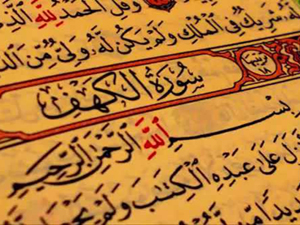 وَقُلِ ٱلْحَمْدُ لِلَّهِ
شَرِيكٌ فِي ٱلْمُلْكِ وَلَمْ يَكُن لَّهُ وَلِيٌّ مِّنَ
سُورَةُ الكَهْفِ
بِسْمِ ٱللَّهِ ٱلرَّحْمَٰنِ ٱلرَّحِيمِ
عَلَىٰ عَبْدِهِ ٱلْكِتَٰبَ وَلَمْ يَجْعَل